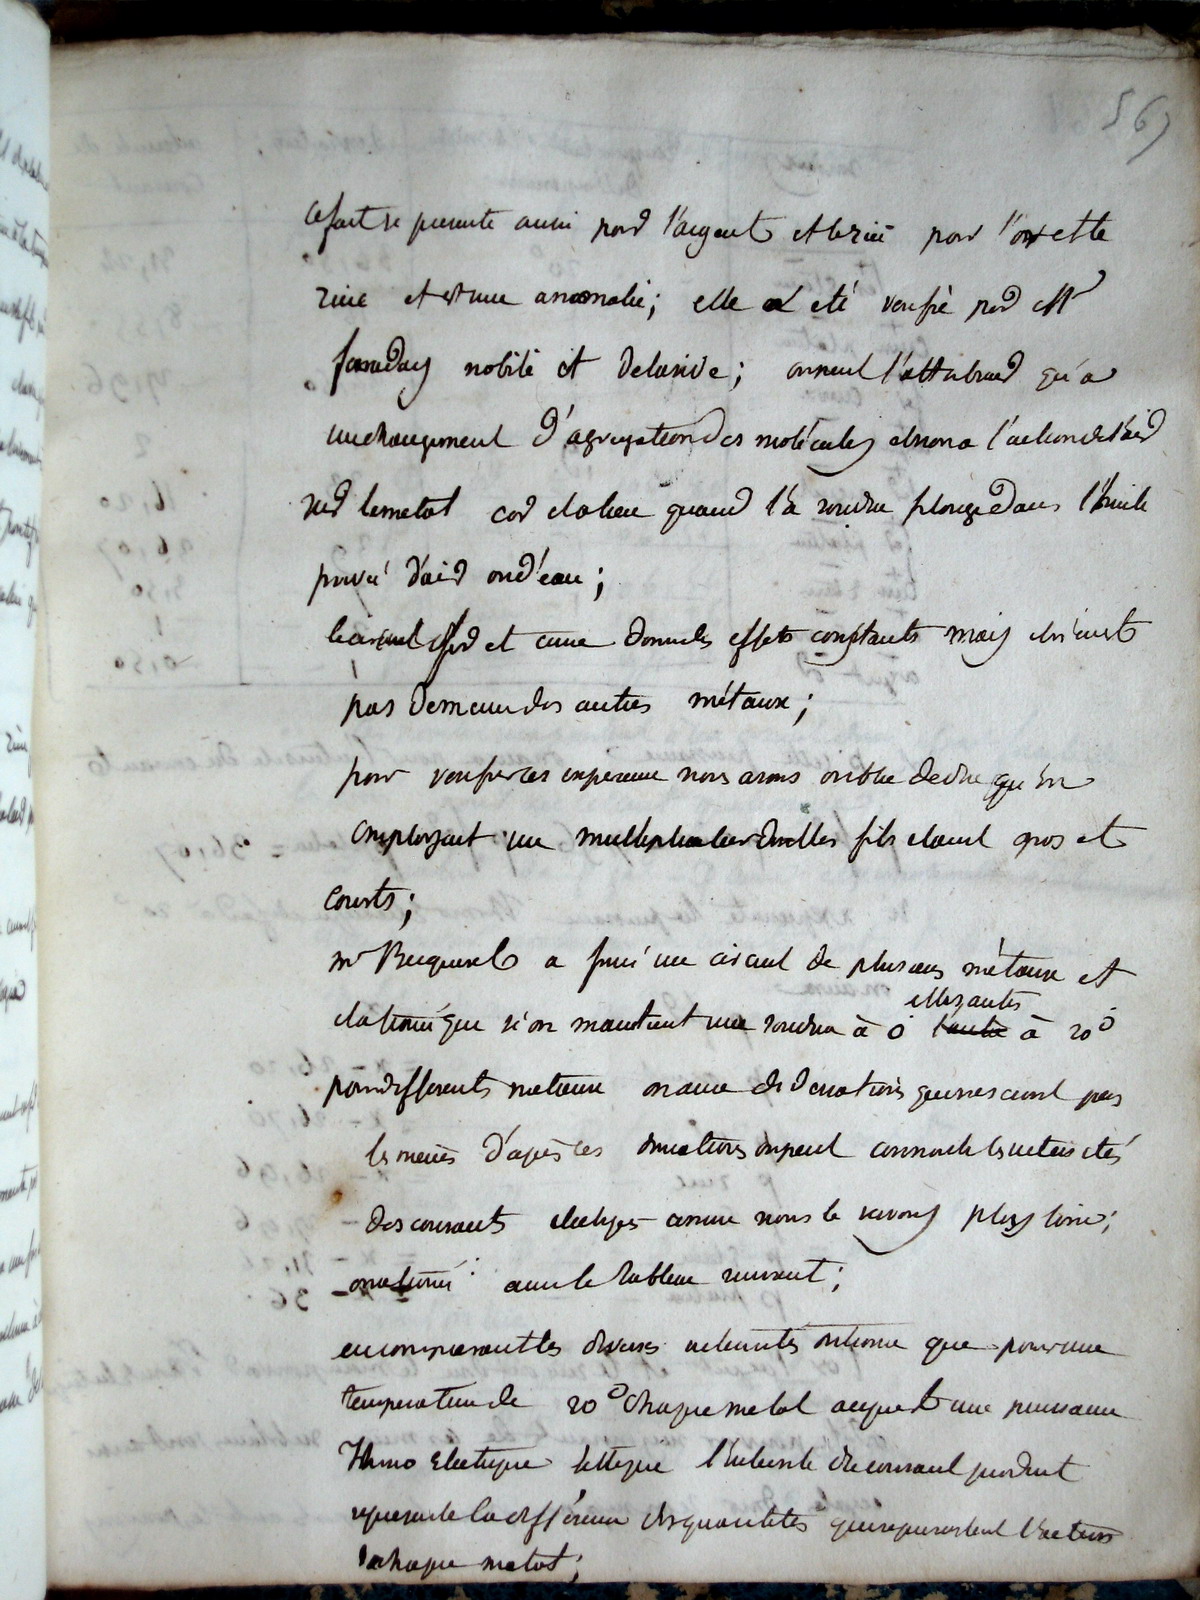 567
ce fait se presente aussi pour l'argent et le zinc pour l'or et le
zinc et est une anomalie; elle a eté verifié par Mr
faraday nobili et delarive; on peut l'attribuer qu'a
un changement d'agregation des molécules et non a l'action de l'air
sur le metal car elle a lieu quand la soudure plonge dans l'huile
privé d'air ou d'eau;
le circuit fer et cuivre donne des effets constants mais il n'en est
pas de meme des autres métaux;
pour verifier ces experience nous avons oublié de dire qu'on
employait un multiplicateur dont les fils etaient gros et
courts;
mr Becquerel a formé un circuit de plusieurs métaux et
il a trouvé que si on maintient une soudure à 0° les autres à 20°
pour differents metaux on a eu des deviations qui ne sont pas
les memes d'après ces deviations on peut connaitre les intensités
des courants electriques comme nous le verrons plus loin;
on a formé ainsi le tableau suivant;
en comparant les diverses intensités on trouve que pour une
temperature de 20° chaque metal acquert une puissance
thermo electrique telle que l'intensité du courant produit
represente la différence des quantités qui representent l'action
de chaque metal;